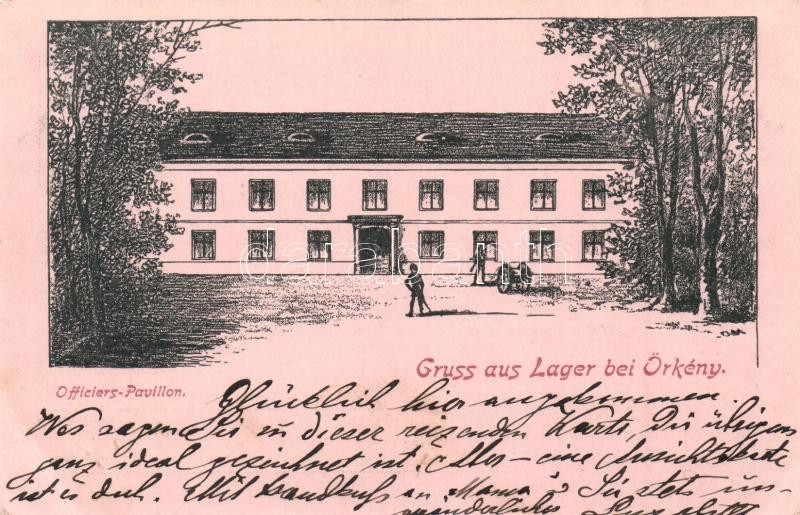 darabanth
Gruss aus Lager bei Örkény.
Officiers-Pavillon.
Glücklich hier angekommen.
Was sagen Sie zu dieser reizenden Karte, die übrigens
ganz ideal gezeichnet ist. Aber – eine Ansichtskarte
ist es doch. Mit Handkuß an Mama Ihr stets un-
veränderliches